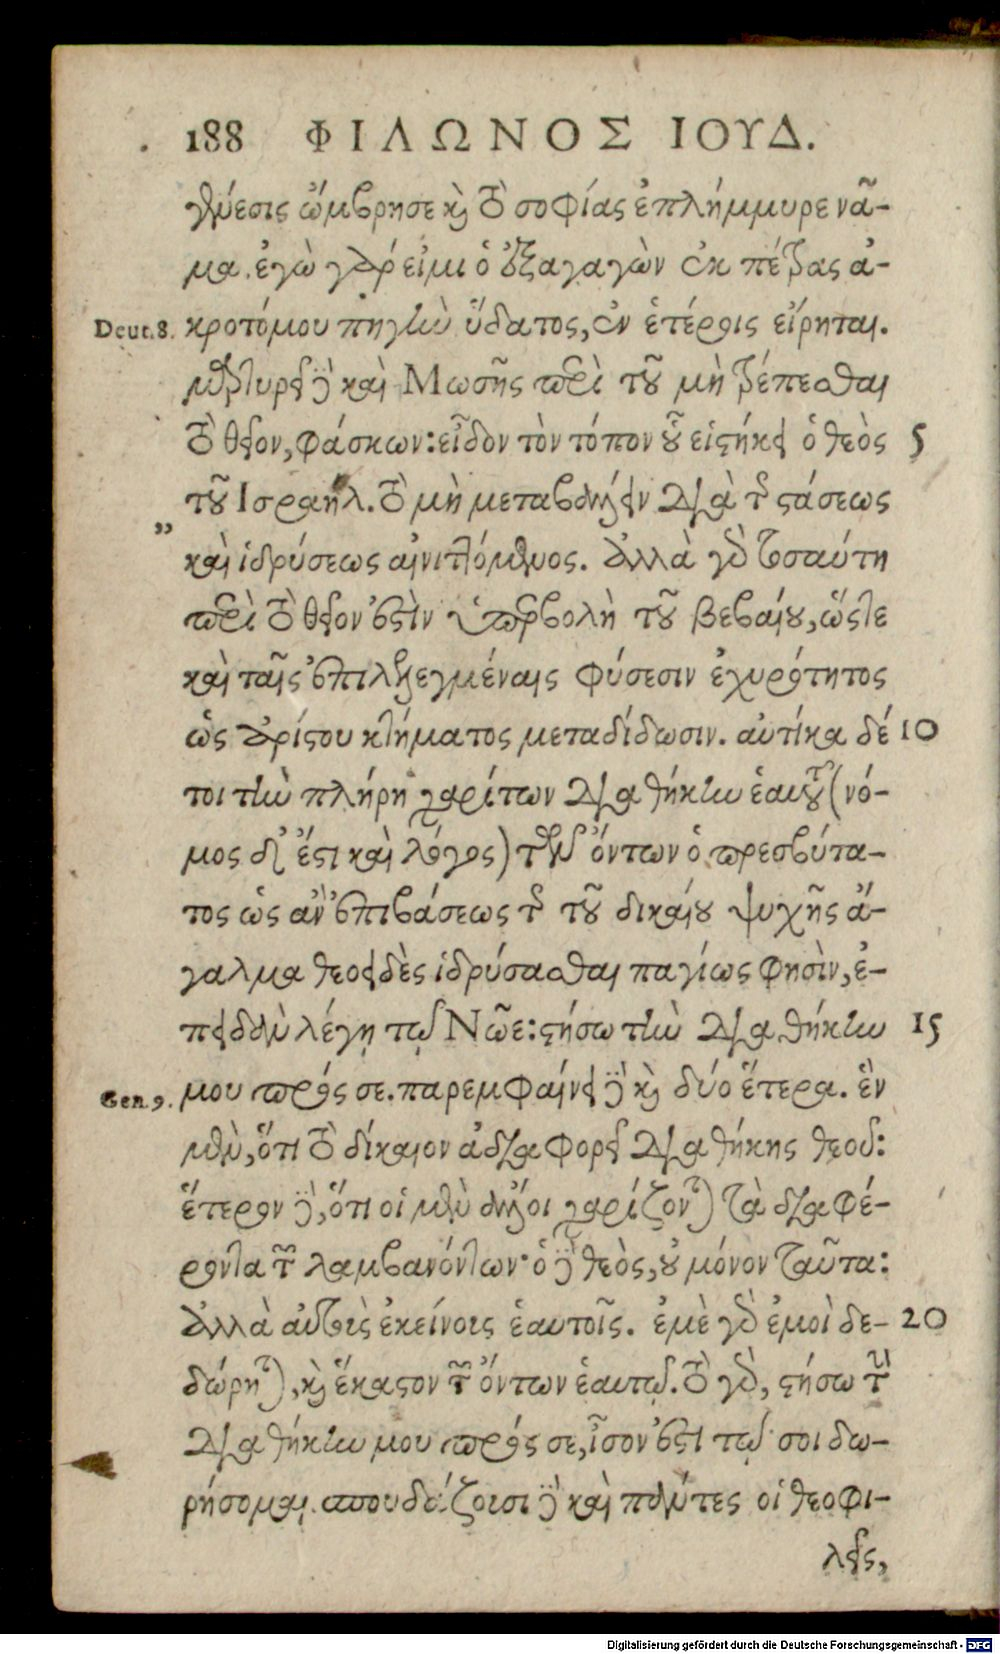 188 ΦΙΛΩΝΟΣ ΙΟΥΔ.
γένεσις ὤμβρησε καὶ τὸ σοφίας ἐπλήμμυρε νᾶ-
μα. ἐγὼ γάρ εἰμι ὁ ἐξαγαγὼν ἐκ πέτρας ἀ-
Deut. 8. κροτόμου πηγὴν ὕδατος, ἐν ἑτέροις εἴρηται.
μαρτυρεῖ δὲ καὶ Μωσῆς περὶ τοῦ μὴ τρέπεσθαι
τὸ θεῖον, φάσκων: εἶδον τὸν τόπον οὗ εἱστήκει ὁ θεὸς 5
τοῦ Ισραήλ. τὸ μὴ μεταβάλλειν διὰ τῆς στάσεως
„ καὶ ἱδρύσεως αἰνιττόμενος. ἀλλὰ γὰρ τοσαύτη
περὶ τὸ θεῖον ἐστὶν ὑπερβολὴ τοῦ βεβαίου, ὥστε
καὶ ταῖς ἐπιλελεγμέναις φύσεσιν ἐχυρότητος
ὡς ἀρίστου κτήματος μεταδίδωσιν. αὐτίκα δέ 10
τοι τὴν πλήρη χαρίτων διαθήκην ἑαυτοῦ (νό-
μος δ' ἐστι καὶ λόγος) τῶν ὄντων ὁ πρεσβύτα-
τος ὡς ἂν ἐπιβάσεως τῆς τοῦ δικαίου ψυχῆς ἄ-
γαλμα θεοειδὲς ἱδρύσασθαι παγίως φησὶν, ἐ-
πειδὰν λέγῃ τῷ Νῶε: στήσω τὴν διαθήκην 15
Gen. 9. μου πρός σε. παρεμφαίνει δὲ καὶ δύο ἕτερα. ἓν
μὲν, ὅτι τὸ δίκαιον ἀδιαφορεῖ διαθήκης θεοῦ:
ἕτερον δὲ, ὅτι οἱ μὲν ἄλλοι χαρίζονται τὰ διαφέ-
ροντα τῶν λαμβανόντων· ὁ δὲ θεὸς, οὐ μόνον ταῦτα:
ἀλλὰ αὐτοὺς ἐκείνοις ἑαυτοῖς. ἐμὲ γὰρ ἐμοὶ δε- 20
δώρηται, καὶ ἕκαστον τῶν ὄντων ἑαυτῷ. τὸ γὰρ, στήσω τὴν
διαθήκην μου πρός σε, ἶσον ἐστι τῷ σοι δω-
ρήσομαι. σπουδάζουσι δὲ καὶ πάντες οἱ θεοφι-
λεῖς,
Digitalisierung gefördert durch die Deutsche Forschungsgemeinschaft - DFG